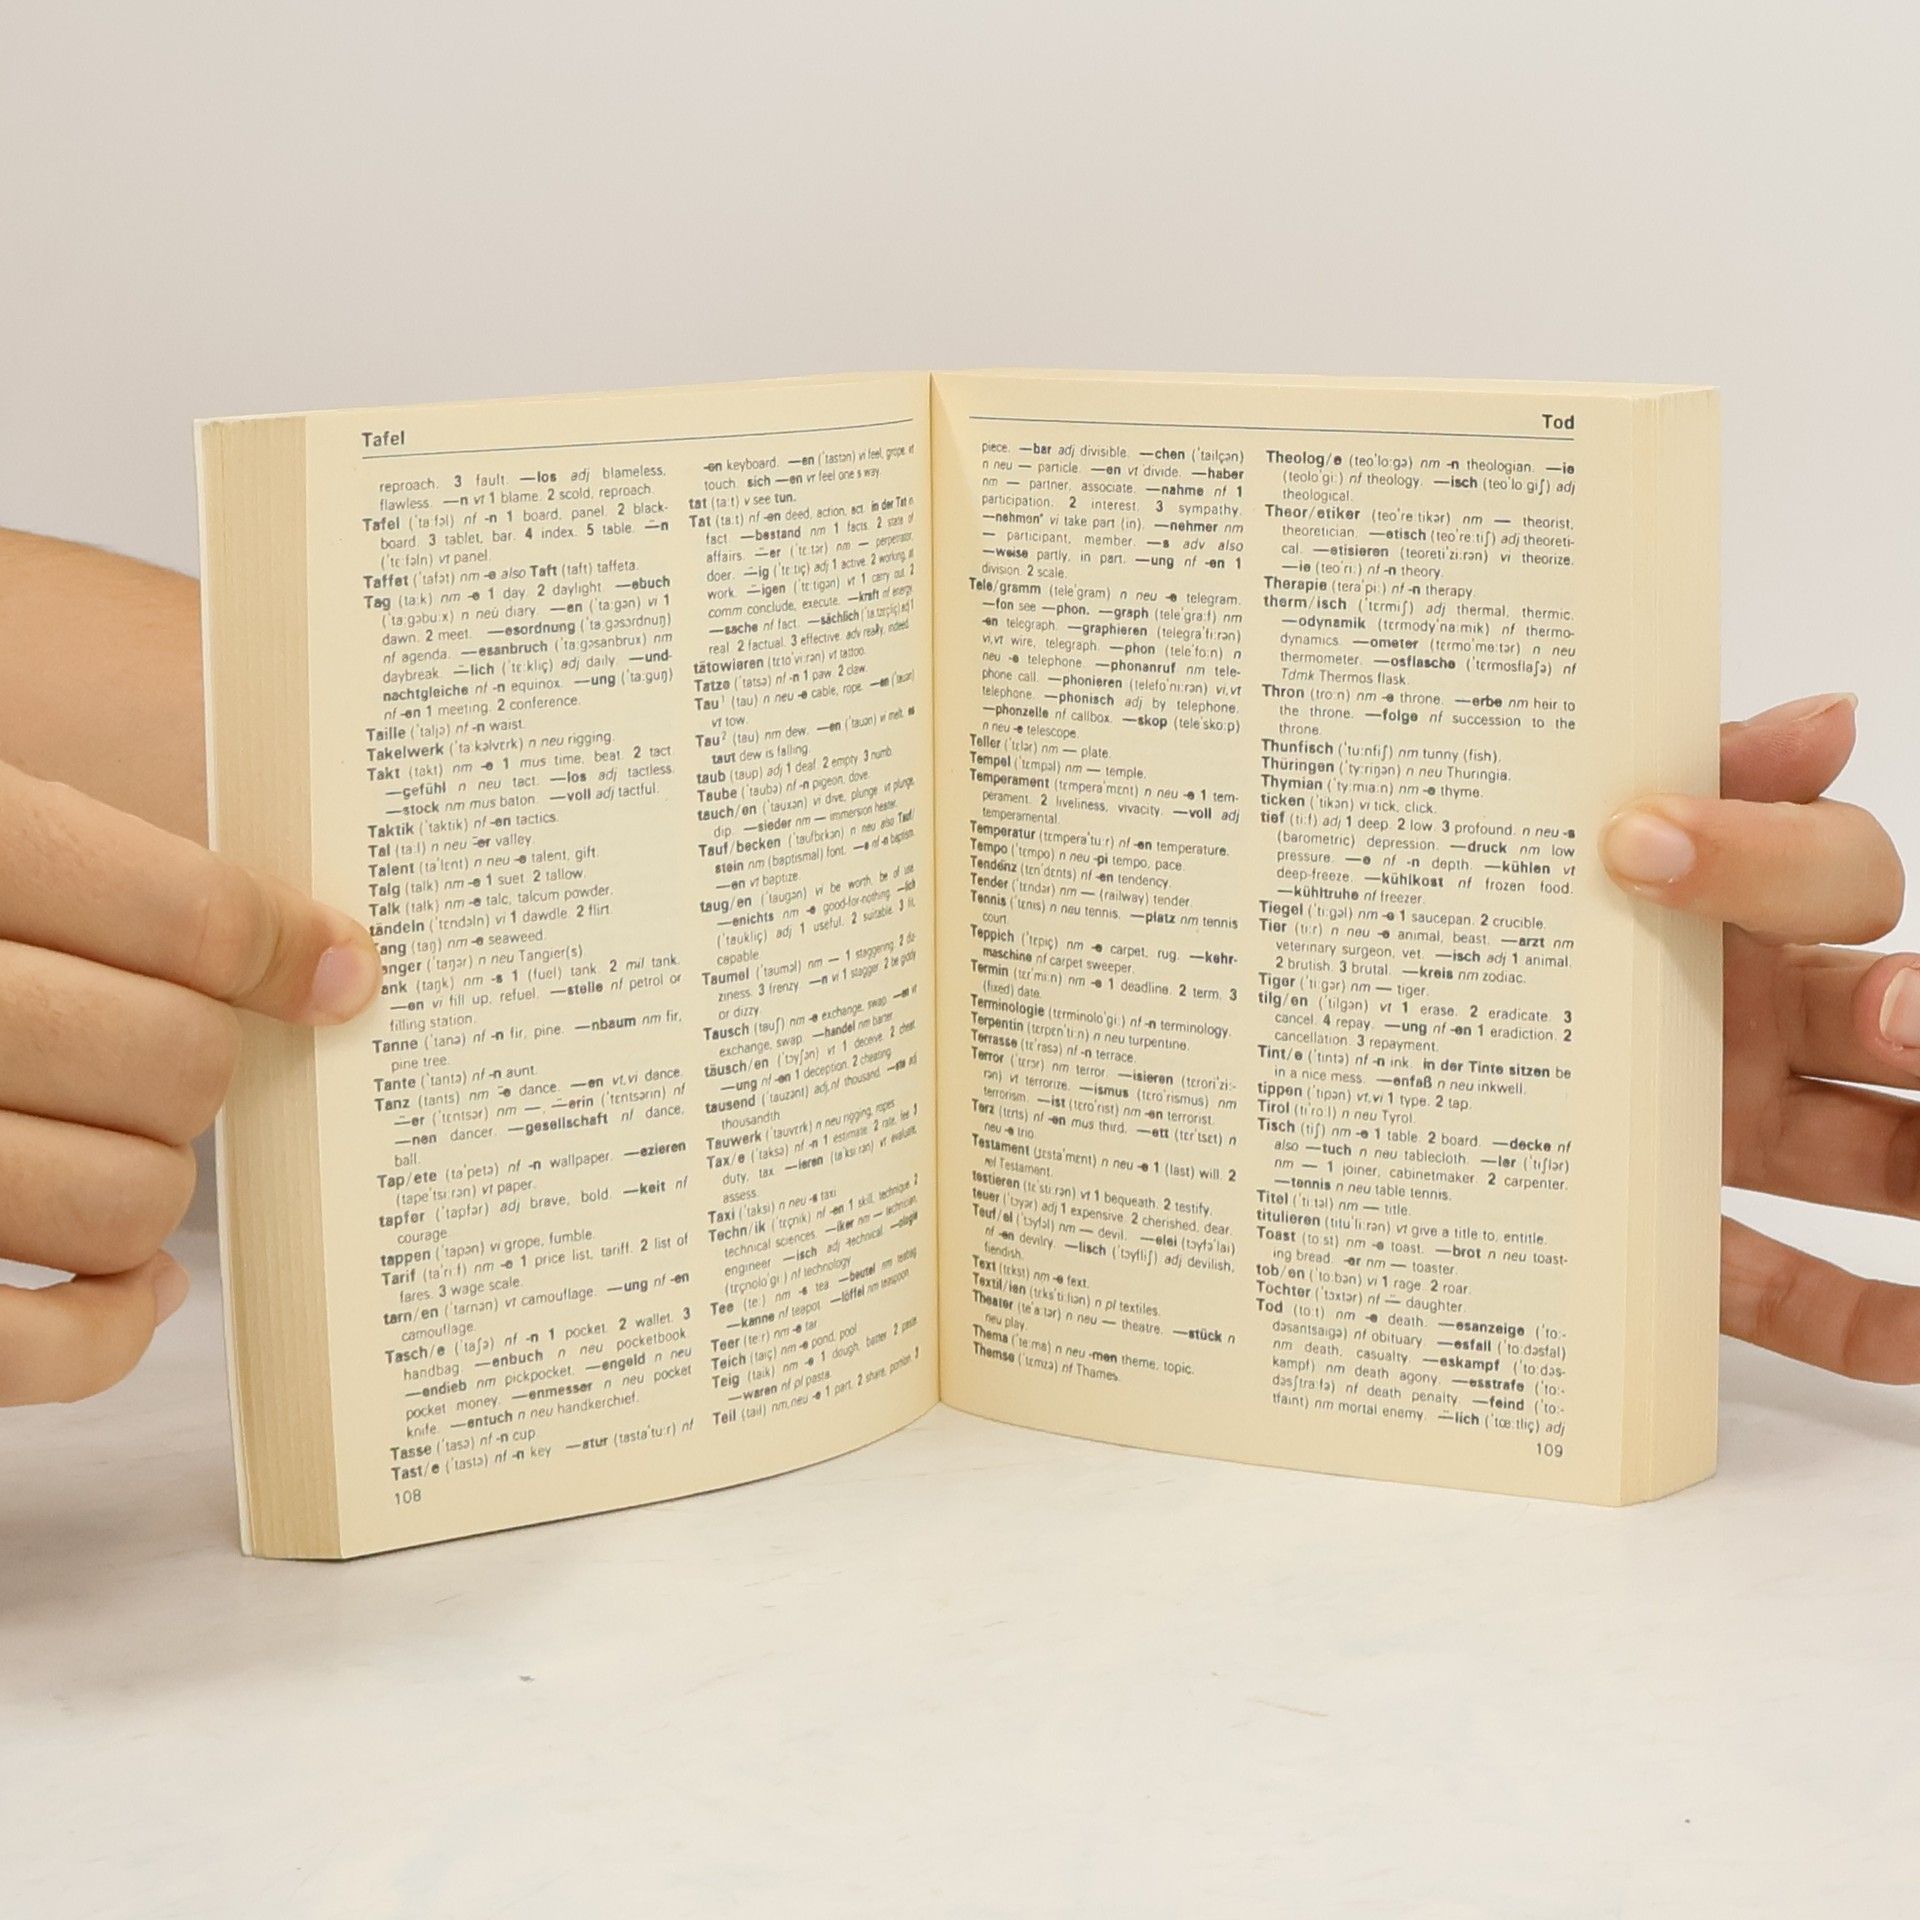 Tafel
reproach. 3 fault. —los adj blameless,
flawless. —n vt 1 blame. 2 scold, reproach.
Tafel (ˈtaːfəl) nf -n 1 board, panel. 2 black-
board. 3 tablet, bar. 4 index. 5 table. —̈n
(ˈtɛːfəln) vt panel.
Taffet (ˈtafət) nm -e also Taft (taft) taffeta.
Tag (taːk) nm -e 1 day. 2 daylight. —ebuch
(ˈtaːgəbuːx) n neu diary. —en (ˈtaːgən) vi 1
dawn. 2 meet. —esordnung (ˈtaːgəsɔrdnuŋ)
nf agenda. —esanbruch (ˈtaːgəsanbrux) nm
daybreak. —̈lich (ˈtɛːkliç) adj daily. —und-
nachtgleiche nf -n equinox. —ung (ˈtaːguŋ)
nf -en 1 meeting. 2 conference.
Taille (ˈtaljə) nf -n waist.
Takelwerk (ˈtaːkəlvɛrk) n neu rigging.
Takt (takt) nm -e 1 mus time, beat. 2 tact.
—gefühl n neu tact. —los adj tactless.
—stock nm mus baton. —voll adj tactful.
Taktik (ˈtaktik) nf -en tactics.
Tal (taːl) n neu ̈-er valley.
Talent (taˈlɛnt) n neu -e talent, gift.
Talg (talk) nm -e 1 suet. 2 tallow.
Talk (talk) nm -e talc, talcum powder.
tändeln (ˈtɛndəln) vi 1 dawdle. 2 flirt.
ang (taŋ) nm -e seaweed.
anger (ˈtaŋər) n neu Tangier(s).
ank (taŋk) nm -s 1 (fuel) tank. 2 mil tank.
—en vi fill up, refuel. —stelle nf petrol or
filling station.
Tanne (ˈtanə) nf -n fir, pine. —nbaum nm fir,
pine tree.
Tante (ˈtantə) nf -n aunt.
Tanz (tants) nm ̈-e dance. —en vt,vi dance.
—̈er (ˈtɛntsər) nm —, —̈erin (ˈtɛntsərin) nf
—nen dancer. —gesellschaft nf dance,
ball.
Tap/ete (taˈpetə) nf -n wallpaper. —ezieren
(tapeˈtsiːrən) vt paper.
tapfer (ˈtapfər) adj brave, bold. —keit nf
courage.
tappen (ˈtapən) vi grope, fumble.
Tarif (taˈriːf) nm -e 1 price list, tariff. 2 list of
fares. 3 wage scale.
tarn/en (ˈtarnən) vt camouflage. —ung nf -en
camouflage.
Tasch/e (ˈtaʃə) nf -n 1 pocket. 2 wallet. 3
handbag. —enbuch n neu pocketbook.
—endieb nm pickpocket. —engeld n neu
pocket money. —enmesser n neu pocket
knife. —entuch n neu handkerchief.
Tasse (ˈtasə) nf -n cup
Tast/e (ˈtastə) nf -n key —atur (tastaˈtuːr) nf
108
-en keyboard. —en (ˈtastən) vi feel, grope, vt
touch. sich —en vr feel one's way.
tat (taːt) v see tun.
Tat (taːt) nf -en deed, action, act. in der Tat in
fact. —bestand nm 1 facts. 2 state of
affairs. —̈er (ˈtɛːtər) nm — perpetrator,
doer. —̈ig (ˈtɛːtiç) adj 1 active. 2 working, at
work. —̈igen (ˈtɛːtigən) vt 1 carry out. 2
comm conclude, execute. —kraft nf energy.
—sache nf fact. —sächlich (ˈtaːtzɛçliç) adj 1
real. 2 factual. 3 effective. adv really, indeed.
tätowieren (tɛtoˈviːrən) vt tattoo.
Tatze (ˈtatsə) nf -n 1 paw. 2 claw.
Tau¹ (tau) n neu -e cable, rope. —en (ˈtauən)
vt tow.
Tau² (tau) nm dew. —en (ˈtauən) vi melt. es
taut dew is falling.
taub (taup) adj 1 deaf. 2 empty 3 numb.
Taube (ˈtaubə) nf -n pigeon, dove.
tauch/en (ˈtauxən) vi dive, plunge vt plunge,
dip. —sieder nm — immersion heater.
Tauf/becken (ˈtaufbɛkən) n neu also Tauf/
stein nm (baptismal) font. —e nf -n baptism.
—en vt baptize.
taug/en (ˈtaugən) vi be worth, be of use.
—enichts nm -e good-for-nothing. —lich
(ˈtaukliç) adj 1 useful. 2 suitable. 3 fit,
capable.
Taumel (ˈtauməl) nm — 1 staggering. 2 diz-
ziness. 3 frenzy. —n vi 1 stagger. 2 be giddy
or dizzy
Tausch (tauʃ) nm -e exchange, swap. —en vt
exchange, swap. —handel nm barter.
täusch/en (ˈtɔyʃən) vt 1 deceive. 2 cheat.
—ung nf -en 1 deception. 2 cheating.
tausend (ˈtauzənt) adj,nf thousand. —ste adj
thousandth.
Tauwerk (ˈtauvɛrk) n neu rigging, ropes.
Tax/e (ˈtaksə) nf -n 1 estimate. 2 rate, fee. 3
duty, tax —ieren (taˈksiːrən) vt evaluate,
assess.
Taxi (ˈtaksi) n neu -s taxi.
Techn/ik (ˈtɛçnik) nf -en 1 skill, technique. 2
technical sciences. —iker nm — technician,
engineer —isch adj technical —ologie
(tɛçnoloˈgiː) nf technology
Tee (teː) nm -s tea. —beutel nm teabag
—kanne nf teapot —löffel nm teaspoon.
Teer (teːr) nm -e tar
Teich (taiç) nm -e pond, pool
Teig (taik) nm -e 1 dough, batter 2 paste.
—waren nf pl pasta.
Teil (tail) nm,neu -e 1 part. 2 share, portion. 3
Tod
piece. —bar adj divisible. —chen (ˈtailçən)
n neu — particle. —en vt divide. —haber
nm — partner, associate. —nahme nf 1
participation. 2 interest. 3 sympathy.
—nehmen* vi take part (in). —nehmer nm
— participant, member. —s adv also
—weise partly, in part. —ung nf -en 1
division. 2 scale.
Tele/gramm (teleˈgram) n neu -e telegram.
—fon see —phon. —graph (teleˈgraːf) nm
-en telegraph. —graphieren (telegraˈfiːrən)
vi,vt wire, telegraph. —phon (teleˈfoːn) n
neu -e telephone. —phonanruf nm tele-
phone call. —phonieren (telefoˈniːrən) vi,vt
telephone. —phonisch adj by telephone.
—phonzelle nf callbox. —skop (teleˈskoːp)
n neu -e telescope.
Teller (ˈtɛlər) nm — plate.
Tempel (ˈtɛmpəl) nm — temple.
Temperament (tɛmperaˈmɛnt) n neu -e 1 tem-
perament. 2 liveliness, vivacity. —voll adj
temperamental.
Temperatur (tɛmperaˈtuːr) nf -en temperature.
Tempo (ˈtɛmpo) n neu -pi tempo, pace.
Tendenz (tɛnˈdɛnts) nf -en tendency.
Tender (ˈtɛndər) nm — (railway) tender.
Tennis (ˈtɛnis) n neu tennis. —platz nm tennis
court.
Teppich (ˈtɛpiç) nm -e carpet, rug. —kehr-
maschine nf carpet sweeper.
Termin (tɛrˈmiːn) nm -e 1 deadline. 2 term. 3
(fixed) date.
Terminologie (tɛrminoloˈgiː) nf -n terminology.
Terpentin (tɛrpɛnˈtiːn) n neu turpentine.
Terrasse (tɛˈrasə) nf -n terrace.
Terror (ˈtɛrɔr) nm terror. —isieren (tɛroriˈziː-
rən) vt terrorize. —ismus (tɛroˈrismus) nm
terrorism. —ist (tɛroˈrist) nm -en terrorist.
Terz (tɛrts) nf -en mus third. —ett (tɛrˈtsɛt) n
neu -e trio.
Testament (tɛstaˈmɛnt) n neu -e 1 (last) will. 2
rel Testament.
testieren (tɛˈstiːrən) vt 1 bequeath. 2 testify.
teuer (ˈtɔyər) adj 1 expensive. 2 cherished, dear.
Teuf/el (ˈtɔyfəl) nm — devil. —elei (tɔyfəˈlai)
nf -en devilry. —lisch (ˈtɔyfliʃ) adj devilish,
fiendish.
Text (tɛkst) nm -e text.
Textil/ien (tɛksˈtiːliən) n pl textiles.
Theater (teˈaːtər) n neu — theatre. —stück n
neu play.
Thema (ˈteːma) n neu -men theme, topic.
Themse (ˈtɛmzə) nf Thames.
Theolog/e (teoˈloːgə) nm -n theologian. —ie
(teoloˈgiː) nf theology. —isch (teoˈloːgiʃ) adj
theological.
Theor/etiker (teoˈreːtikər) nm — theorist,
theoretician. —etisch (teoˈreːtiʃ) adj theoreti-
cal. —etisieren (teoretiˈziːrən) vi theorize.
—ie (teoˈriː) nf -n theory.
Therapie (teraˈpiː) nf -n therapy.
therm/isch (ˈtɛrmiʃ) adj thermal, thermic.
—odynamik (tɛrmodyˈnaːmik) nf thermo-
dynamics. —ometer (tɛrmoˈmeːtər) n neu
thermometer. —osflasche (ˈtɛrmosflaʃə) nf
Tdmk Thermos flask.
Thron (troːn) nm -e throne. —erbe nm heir to
the throne. —folge nf succession to the
throne.
Thunfisch (ˈtuːnfiʃ) nm tunny (fish).
Thüringen (ˈtyːriŋən) n neu Thuringia.
Thymian (ˈtyːmiaːn) nm -e thyme.
ticken (ˈtikən) vi tick, click.
tief (tiːf) adj 1 deep. 2 low. 3 profound. n neu -s
(barometric) depression. —druck nm low
pressure. —e nf -n depth. —kühlen vt
deep-freeze. —kühlkost nf frozen food.
—kühltruhe nf freezer.
Tiegel (ˈtiːgəl) nm -e 1 saucepan. 2 crucible.
Tier (tiːr) n neu -e animal, beast. —arzt nm
veterinary surgeon, vet. —isch adj 1 animal.
2 brutish. 3 brutal. —kreis nm zodiac.
Tiger (ˈtiːgər) nm — tiger.
tilg/en (ˈtilgən) vt 1 erase. 2 eradicate. 3
cancel. 4 repay. —ung nf -en 1 eradiction. 2
cancellation. 3 repayment.
Tint/e (ˈtintə) nf -n ink. in der Tinte sitzen be
in a nice mess. —enfaß n neu inkwell.
tippen (ˈtipən) vt,vi 1 type. 2 tap.
Tirol (tiˈroːl) n neu Tyrol.
Tisch (tiʃ) nm -e 1 table. 2 board. —decke nf
also —tuch n neu tablecloth. —ler (ˈtiʃlər)
nm — 1 joiner, cabinetmaker. 2 carpenter.
—tennis n neu table tennis.
Titel (ˈtiːtəl) nm — title.
titulieren (tituˈliːrən) vt give a title to, entitle.
Toast (toːst) nm -e toast. —brot n neu toast-
ing bread. -er nm — toaster.
tob/en (ˈtoːbən) vi 1 rage. 2 roar.
Tochter (ˈtɔxtər) nf —̈ daughter.
Tod (toːt) nm -e death. —esanzeige (ˈtoː-
dəsantsaigə) nf obituary. —esfall (ˈtoːdəsfal)
nm death, casualty. —eskampf (ˈtoːdəs-
kampf) nm death agony. —esstrafe (ˈtoː-
dəsʃtraːfə) nf death penalty. —feind (ˈtoː-
tfaint) nm mortal enemy. —̈lich (ˈtœːtliç) adj
109